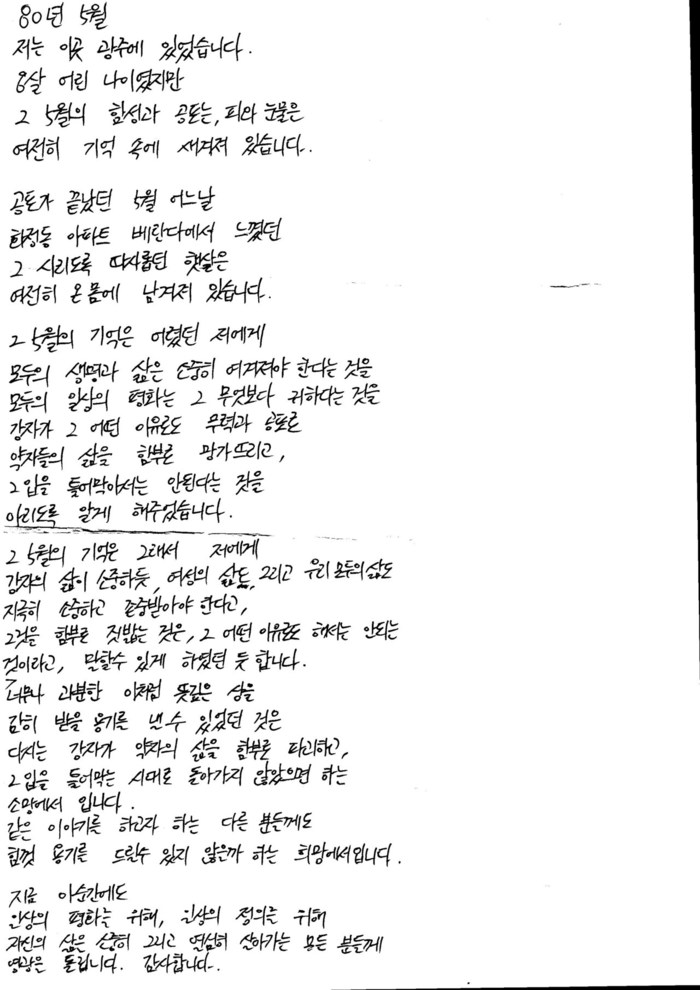 80년 5월
저는 이곳 광주에 있었습니다.
8살 어린 나이였지만
그 5월의 함성과 공포는, 피와 눈물은
여전히 기억 속에 새겨져 있습니다.
공포가 끝났던 5월 어느날
화정동 아파트 베란다에서 느꼈던
그 시리도록 따사롭던 햇살은
여전히 온몸에 남겨져 있습니다.
그 5월의 기억은 어렸던 저에게
모두의 생명과 삶은 소중히 여겨져야 한다는 것을
모두의 일상의 평화는 그 무엇보다 귀하다는 것을
강자가 그 어떤 이유로도 무력과 공포로
약자들의 삶을 함부로 망가뜨리고,
그 입을 틀어막아서는 안된다는 것을
아리도록 알게 해주었습니다.
그 5월의 기억은 그래서 저에게
강자의 삶이 소중하듯, 여성의 삶도, 그리고 우리 모두의 삶도
지극히 소중하고 존중받아야 한다고,
그것을 함부로 짓밟는 것은, 그 어떤 이유로도 해서는 안되는
것이라고, 말할수 있게 하였던 듯 합니다.
너무나 과분한 이처럼 뜻깊은 상을
감히 받을 용기를 낼 수 있었던 것은
다시는 강자가 약자의 삶을 함부로 파괴하고,
그 입을 틀어막는 시대로 돌아가지 않았으면 하는
소망에서 입니다.
같은 이야기를 하고자 하는 다른 분들께도
힘껏 용기를 드릴수 있지 않은가 하는 희망에서입니다.
지금 이순간에도
일상의 평화를 위해, 일상의 정의를 위해
자신의 삶을 소중히 그리고 열심히 살아가는 모든 분들께
영광을 돌립니다. 감사합니다.